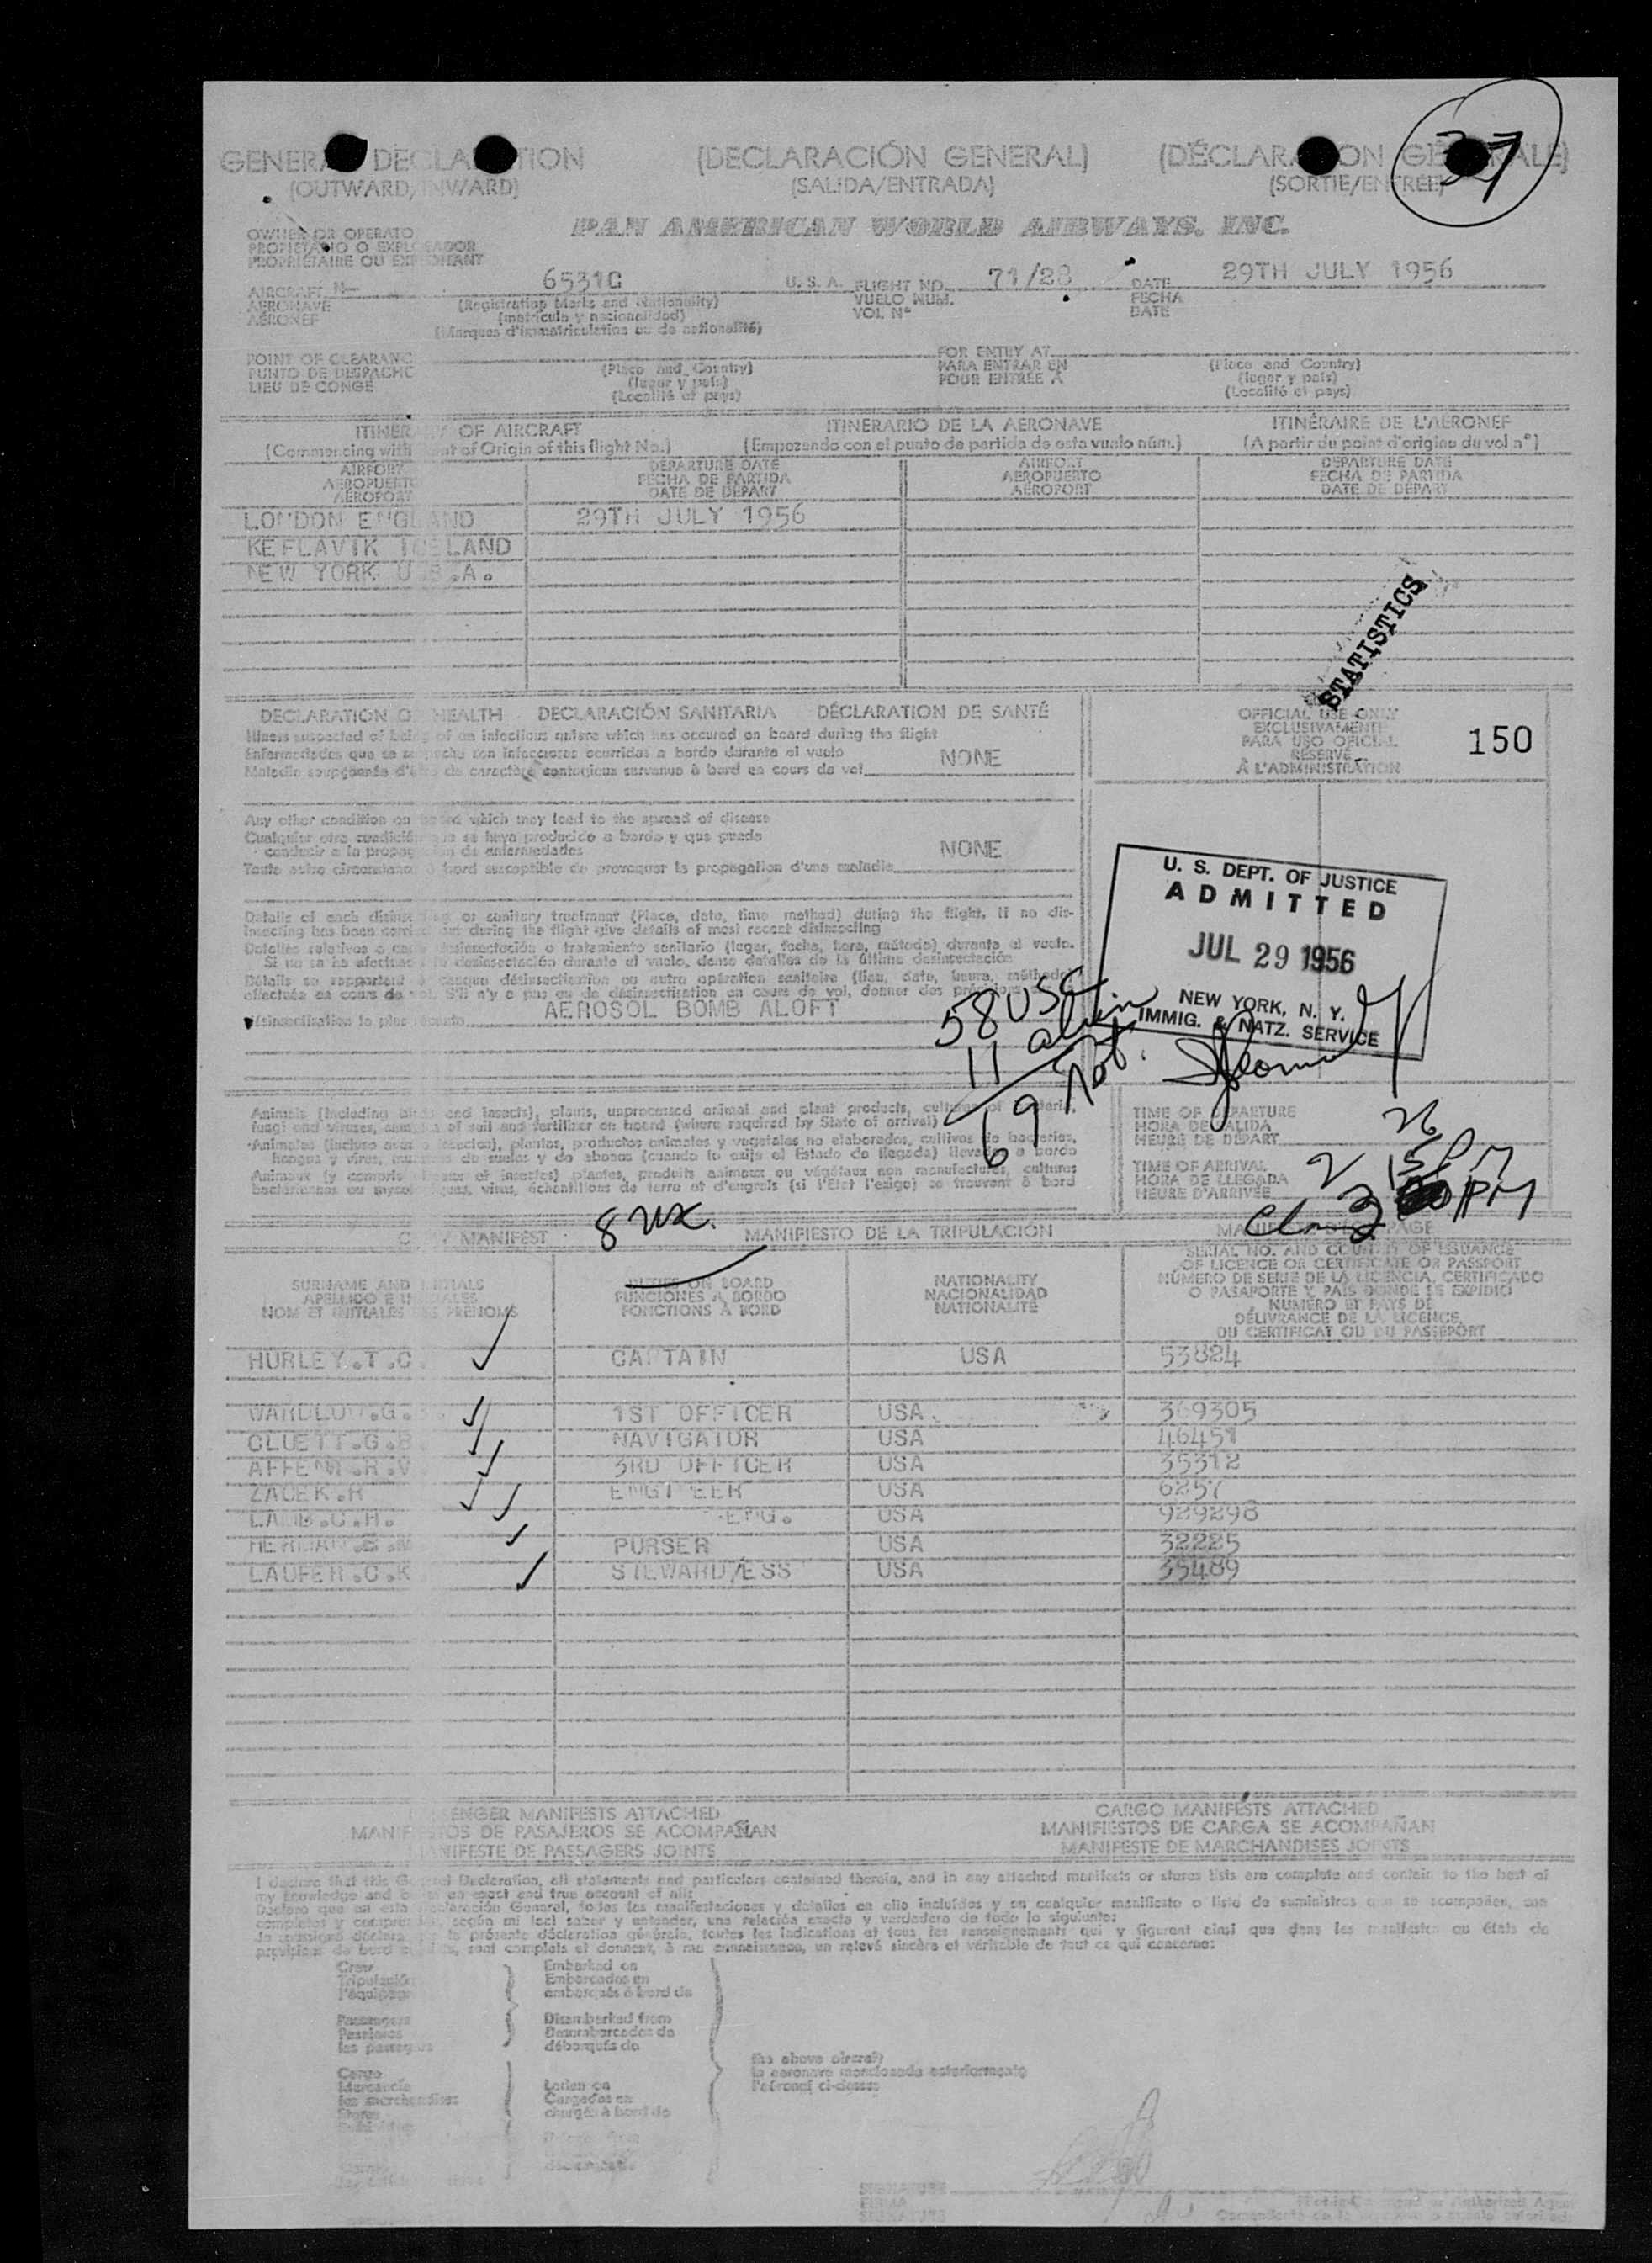 37
GENERAL DECLARATION (DECLARACIÓN GENERAL) (DÉCLARATION GÉNÉRALE)
(OUTWARD/INWARD) (SALIDA/ENTRADA) (SORTIE/ENTREE)
PAN AMERICAN WORLD AIRWAYS, INC.
OWNER OR OPERATO
PROPIETARIO O EXPLOTADOR
PROPRIÉTAIRE OU EXPLOITANT
AIRCRAFT N— U. S. A. FLIGHT NO. 71/28 DATE 29TH JULY 1956
AERONAVE (Registration Marks and Nationality) VUELO NUM. FECHA
AÉRONEF (matrícula y nacionalidad) VOL Nº DATE
(Marques d'immatriculation ou de nationalité)
POINT OF CLEARANC FOR ENTRY AT
PUNTO DE DESPACHO (Place and Country) PARA ENTRAR EN (Place and Country)
LIEU DE CONGÉ (lugar y país) POUR ENTRÉE À (lugar y país)
(Localité et pays) (Localité et pays)
ITINERARY OF AIRCRAFT ITINERARIO DE LA AERONAVE ITINÉRAIRE DE L'AÉRONEF
(Commencing with of Origin of this flight No.) (Empezando con el punto de partida de esta vuelo núm.) (A partir du point d'origine du vol nº)
AIRPORT DEPARTURE DATE AIRPORT DEPARTURE DATE
AEROPUERTO FECHA DE PARTIDA AEROPUERTO FECHA DE PARTIDA
AÉROPORT DATE DE DÉPART AÉROPORT DATE DE DÉPART
LONDON ENGLAND 29TH JULY 1956
KEFLAVIK ICELAND
NEW YORK U.S.A.
STATISTICS
DECLARATION OF HEALTH DECLARACIÓN SANITARIA DÉCLARATION DE SANTÉ
Illness suspected of being of an infectious nature which has occured on board during the flight
Enfermedades que se sospecha son infecciosas ocurridas a bordo durante el vuelo NONE
Maladie soupçonnée d'être de caractère contagieux survenue à bord en cours de vol
OFFICIAL USE ONLY
EXCLUSIVAMENTE
PARA USO OFICIAL 150
RÉSERVÉ
À L'ADMINISTRATION
Any other condition on board which may lead to the spread of disease
Cualquier otra condición que se haya producido a bordo y que pueda
conducir a la propagación de enfermedades NONE
Toute autre circonstance à bord susceptible de provoquer la propagation d'une maladie
U. S. DEPT. OF JUSTICE
ADMITTED
JUL 29 1956
NEW YORK, N. Y.
IMMIG. & NATZ. SERVICE
Details of each disinsecting or sanitary treatment (Place, date, time method) during the flight, if no dis-
insecting has been carried out during the flight give details of most recent disinsecting
Detalles relativos a cada desinsectación o tratamiento sanitario (lugar, fecha, hora, método) durante el vuelo.
Si no se ha efectuado la desinsectación durante el vuelo, dense detalles de la última desinsectación
AEROSOL BOMB ALOFT
58 USC
11 alien
69 Tot.
Animals (including birds and insects), plants, unprocessed animal and plant products, cultures of
fungi and viruses, of soil and fertilizer on board (where required by State of arrival)
Animales (incluso aves o insectos), plantas, productos animales y vegetales no elaborados, cultivos de bacterias,
hongos y virus, de suelos y de abonos (cuando lo exija el Estado de llegada) llevados a bordo
Animaux (y compris oiseaux et insectes) plantes, produits animaux ou végétaux non manufacturés, cultures
virus, échantillons de terre et d'engrais (si l'Etat l'exige) se trouvant à bord
TIME OF DEPARTURE
HORA DE SALIDA
HEURE DE DÉPART
TIME OF ARRIVAL
HORA DE LLEGADA
HEURE D'ARRIVÉE
MANIFEST MANIFIESTO DE LA TRIPULACIÓN
SURNAME AND INITIALS DUTIES ON BOARD NATIONALITY
APELLIDO E INICIALES FUNCIONES A BORDO NACIONALIDAD
NOM ET INITIALES DES PRENOMS FONCTIONS À BORD NATIONALITÉ
SERIAL NO. AND COUNTRY OF ISSUANCE
OF LICENCE OR CERTIFICATE OR PASSPORT
NÚMERO DE SERIE DE LA LICENCIA, CERTIFICADO
O PASAPORTE Y PAÍS DONDE SE EXPIDIÓ
NUMÉRO ET PAYS DE
DÉLIVRANCE DE LA LICENCE,
DU CERTIFICAT OU DU PASSEPORT
HURLEY.T.C. CAPTAIN USA 53824
1ST OFFICER USA 369305
CLUETT.G.B NAVIGATOR USA
3RD OFFICER USA 35312
ZACEK.R ENGINEER USA 6257
LAMB.C.H. ENG. USA 929298
PURSER USA 32225
LAUFER.C.K STEWARD/ESS USA 35489
PASSENGER MANIFESTS ATTACHED CARGO MANIFESTS ATTACHED
MANIFIESTOS DE PASAJEROS SE ACOMPAÑAN MANIFIESTOS DE CARGA SE ACOMPAÑAN
MANIFESTE DE PASSAGERS JOINTS MANIFESTE DE MARCHANDISES JOINTS
I declare that this General Declaration, all statements and particulars contained therein, and in any attached manifests or stores lists are complete and contain to the best of
my knowledge and an exact and true account of all:
Declaro que en esta Declaración General, todas las manifestaciones y detalles en ella incluídos y en cualquier manifiesto o lista de suministros que se acompañen, son
completos y según mi leal saber y entender, una relación exacta y verdadera de todo lo siguiente:
la présente déclaration générale, toutes les indications et tous les renseignements qui y figurent ainsi que dans les manifestes ou états de
provisions de bord sont complets et donnent, à ma connaissance, un relevé sincère et véritable de tout ce qui concerne:
Crew Embarked on
Tripulación Embarcados en
l'équipage embarqués à bord de
Passengers Disembarked from
Pasajeros Desembarcados de
les passagers débarqués de
Cargo the above aircraft
Mercancía la aeronave mencionada anteriormente
les marchandises l'aéronef ci-dessus
Cargados en
chargés à bord de
SIGNATURE
FIRMA
SIGNATURE